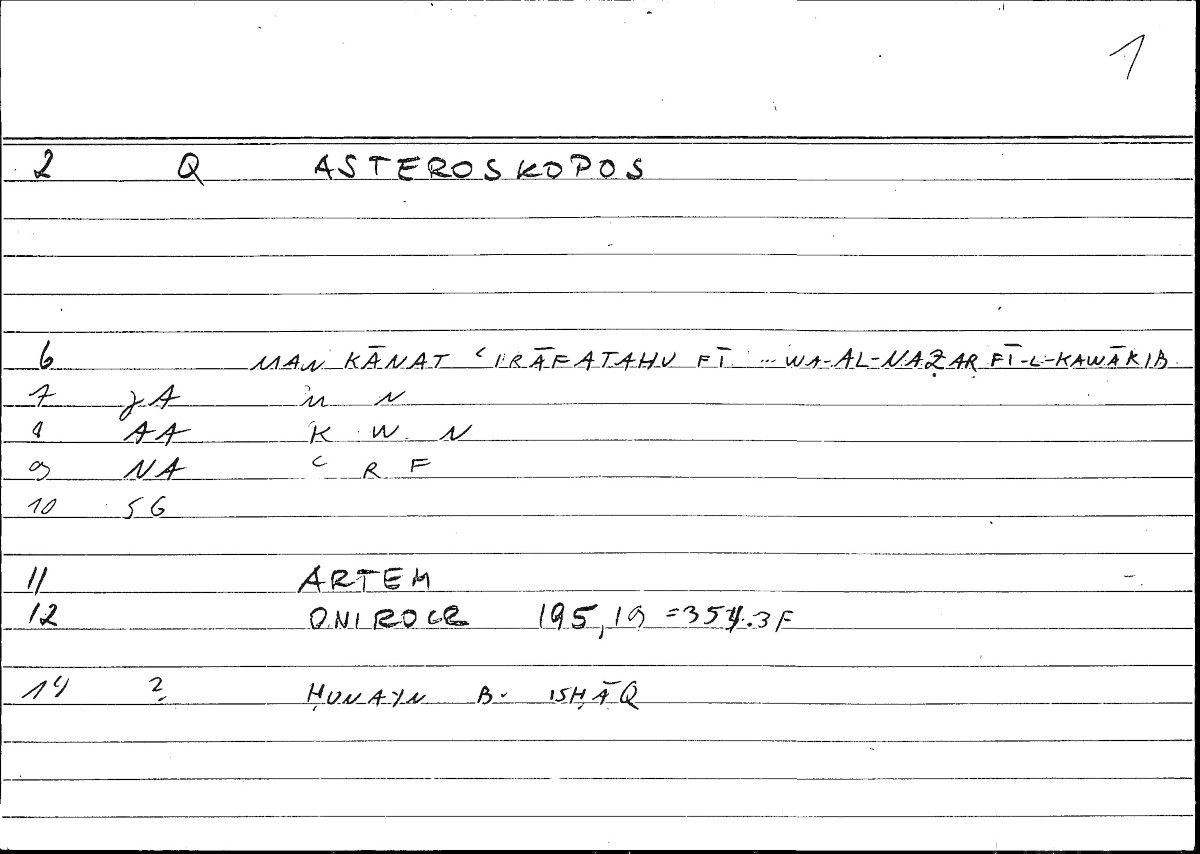 1
2 Q ASTEROSKOPOS
6 MAN KĀNAT ʿIRĀFATAHU FĪ ... WA-AL-NAẒAR FĪ-L-KAWĀKIB
7 JA M N
8 AA K W N
9 NA ʿ R F
10 SG
11 ARTEM
12 ONIROCR 195,19 =354.3F
14 2 ḤUNAYN B. ISḤĀQ